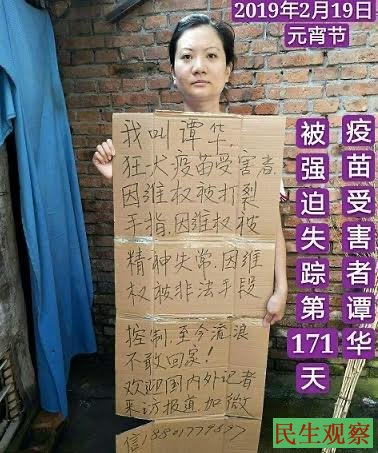 2019年2月19日
元宵节
疫苗受害者谭华
被强迫失踪第171天
我叫谭华,
狂犬疫苗受害者,
因维权被打裂
手指,因维权被
精神失常,因维
权被非法手段
控制,至今流浪
不敢回家!
欢迎国内外记者
来访报道,加微
信
民生观察